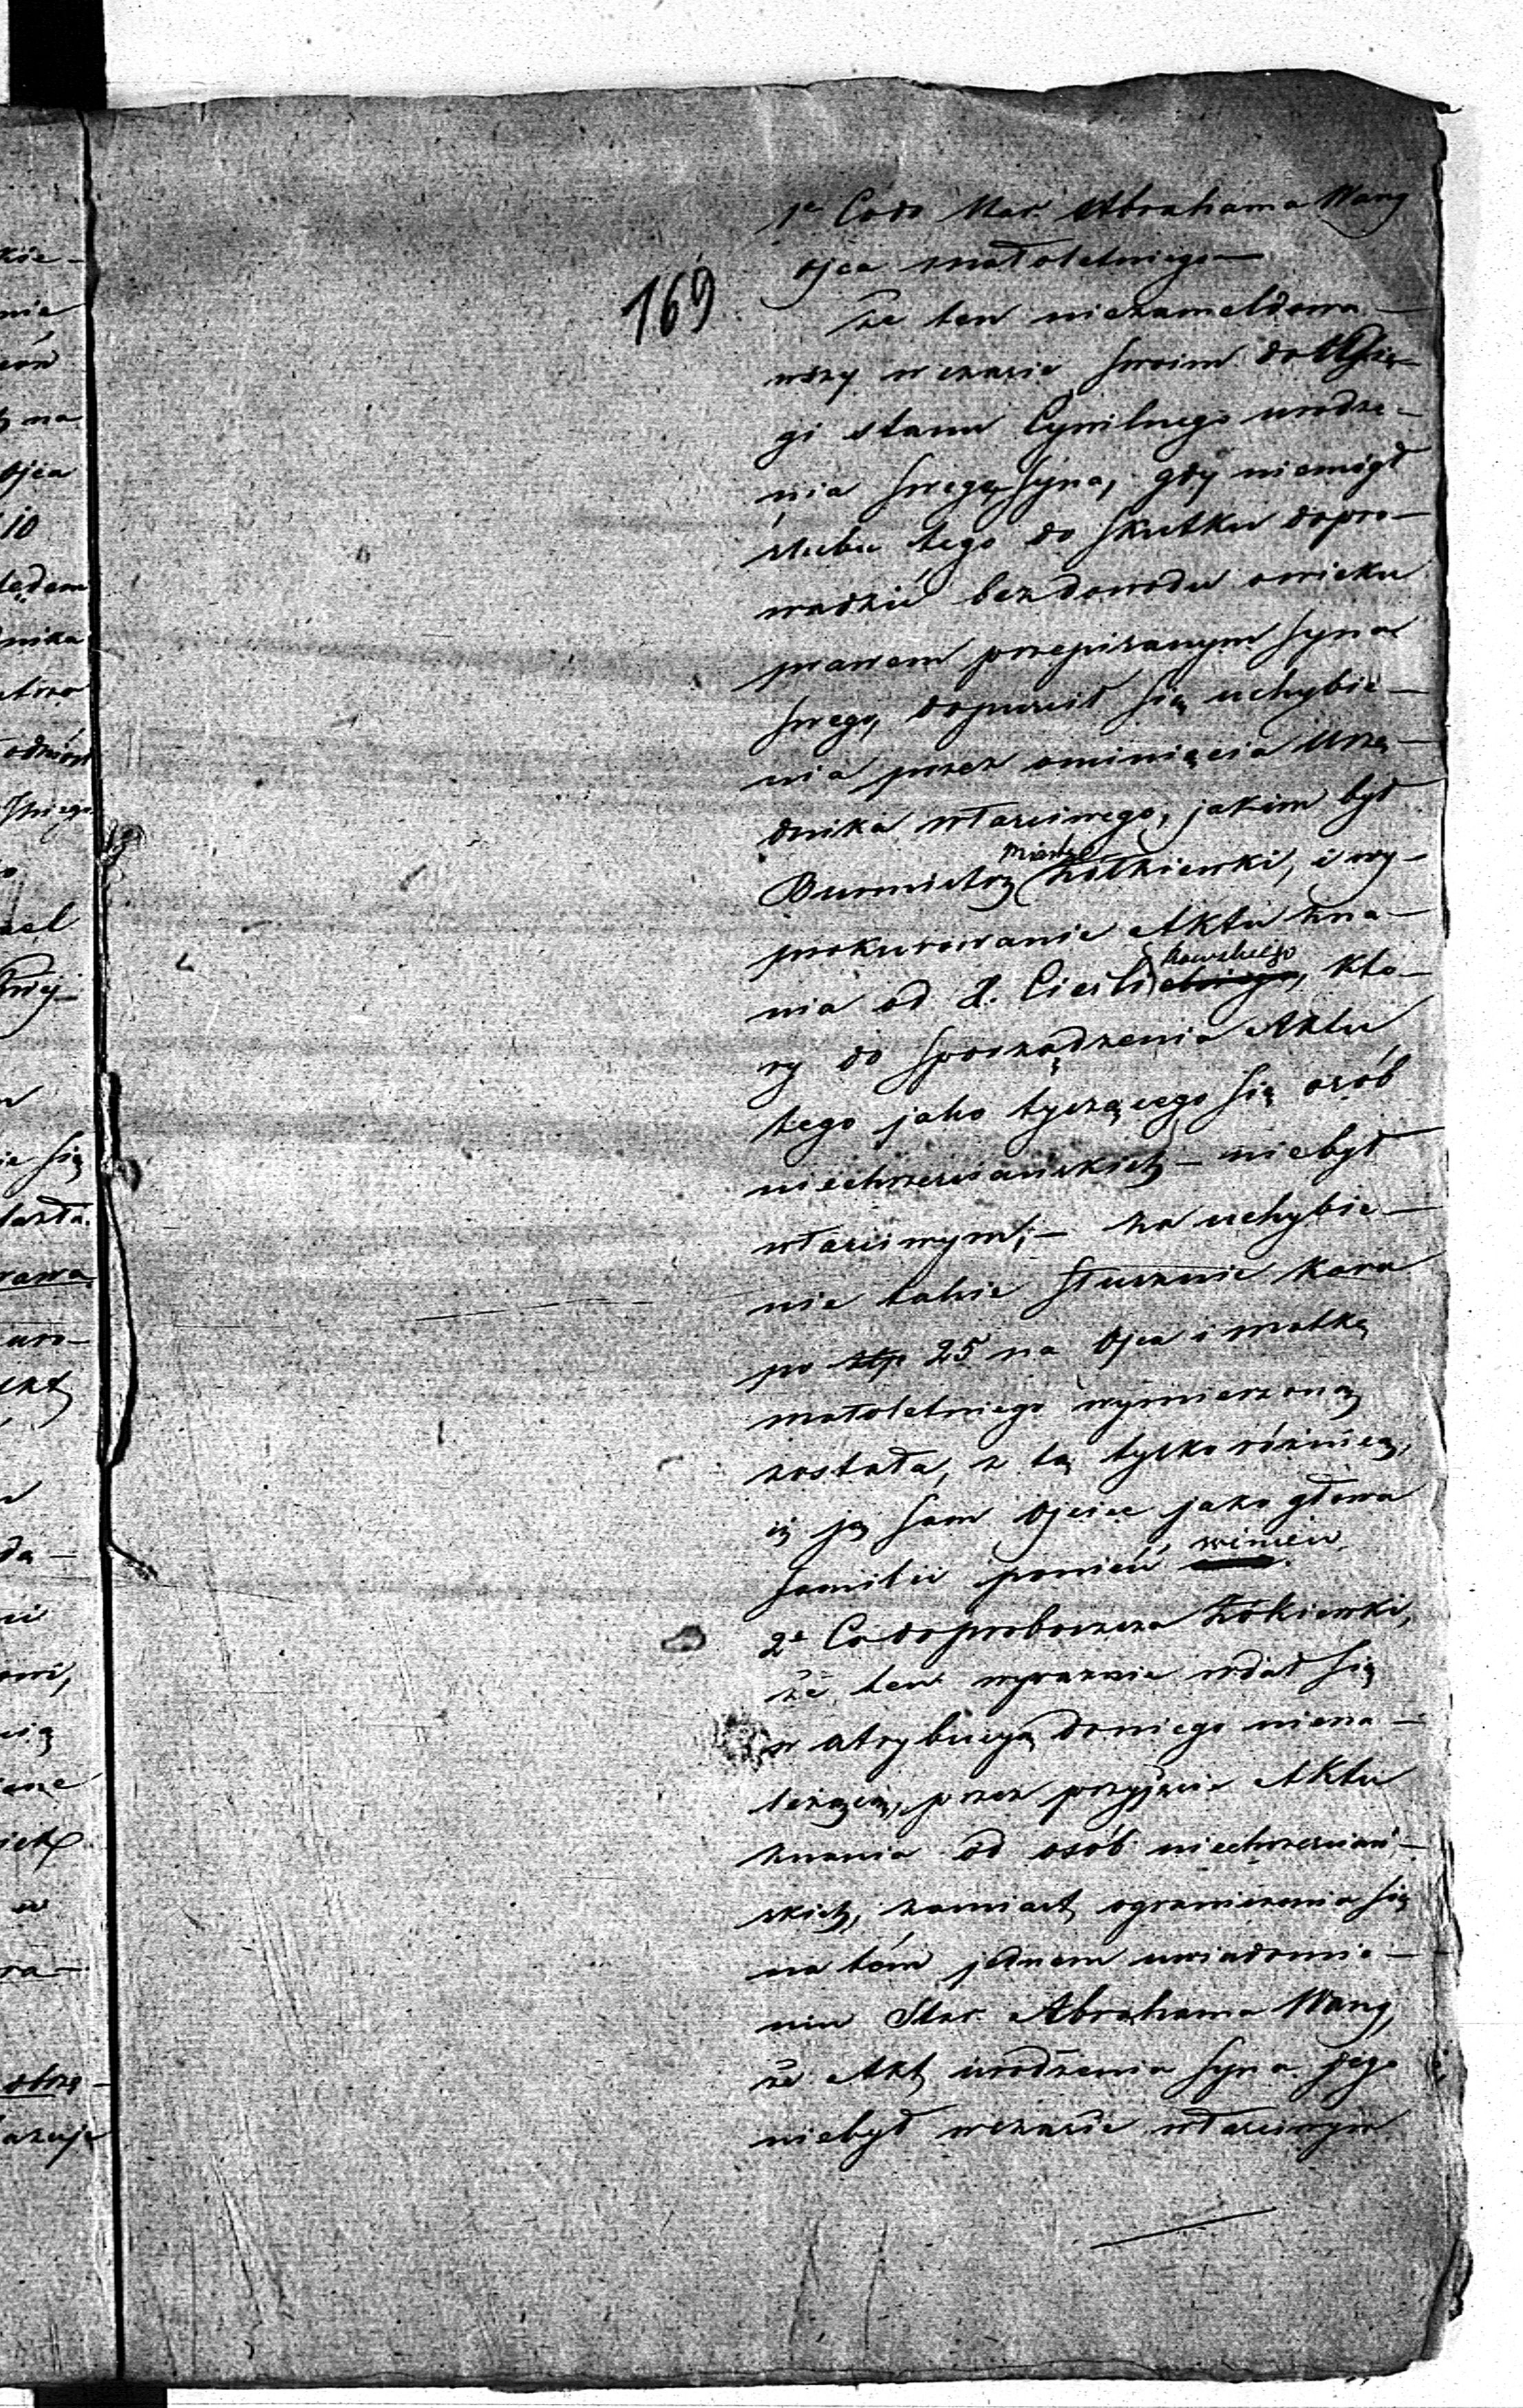 169
1e Codo Star. Abrahama Wang
ojca małoletniego —
że ten niezameldowa-
wszy w czasie swoim do Xię-
gi stanu Cywilnego urodze-
nia swego syna, gdy niemógł
ślubu tego do skutku dopro-
wadzić bez dowodu o wieku
prawem przepisanym syna
swego, dopuscił się uchybie-
nia przez ominięcia Urzę-
dnika własciwego, jakim był
Burmistrz miasta Żółkiewki, i wy-
prokurowanie Aktu zna-
nia od X. kowskiego, któ-
ry do sporządzenia Aktu
tego jako tyczącego się osób
niechrzescianskich — niebył
własciwym; — za uchybie-
nie takie słusznie kara
po złp 25 na Ojca i matkę
małoletniego wymierzoną
została, z tą tylko różnicą,
iż ją sam Ojciec jako głowa
familii ponieść winien.
2e Co do proboszcza Żółkiewki,
że ten wyraznie wdał się
w atrybucyą do niego niena-
leżącą, przez przyjęcie Aktu
znania od osób niechrzescian-
skich, zamiast ograniczenia się
na tém jednem uwiadomie-
niu Star. Abrahama Wang,
że Akt urodzenia syna jego
niebył w czasie własciwym
kie-
nie
na
ojca
10
nika
ael
ie się
rawa